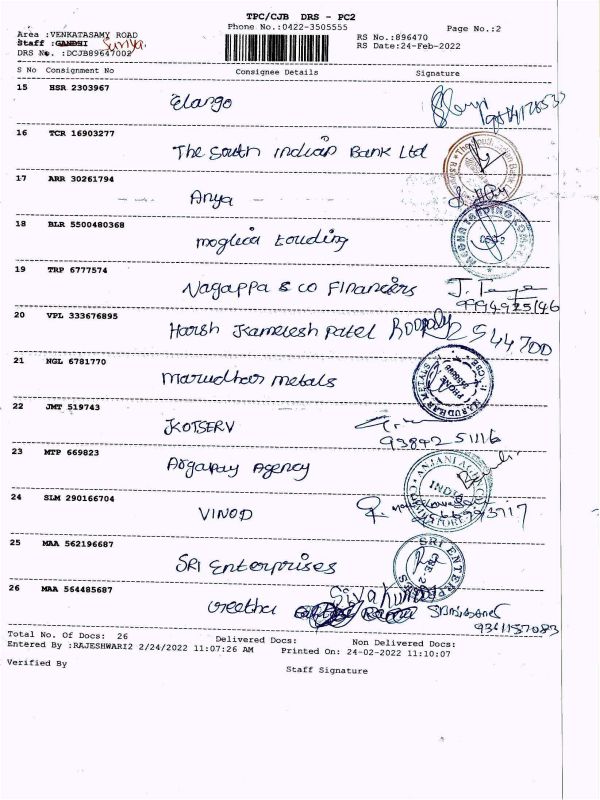 TPC/CJB DRS - PC2
Phone No.:0422-3505555
Page No.:2
Area :VENKATASAMY ROAD
RS No.:896470
Staff :GANDHI Suriya.
RS Date:24-Feb-2022
DRS No. :DCJB89647002
S No Consignment No Consignee Details Signature
15 HSR 2303967
Elango
16 TCR 16903277
The South Indian Bank Ltd
17 ARR 30261794
Anya
18 BLR 5500480368
19 TRP 6777574
Nagappa & co Financiers
9994925146
20 VPL 333676895
Harsh Kamelesh Patel
944700
21 NGL 6781770
Marudhar metals
22 JMT 519743
JKOTSERV
93842 51116
23 MTP 669823
Agency
24 SLM 290166704
VINOD
25 MAA 562196687
SRI Enterprises
SRI ENTERPRISES
26 MAA 564485687
Geetha
Sivakumar
9361157083
Total No. Of Docs: 26 Delivered Docs: Non Delivered Docs:
Entered By :RAJESHWARI2 2/24/2022 11:07:26 AM Printed On: 24-02-2022 11:10:07
Verified By
Staff Signature